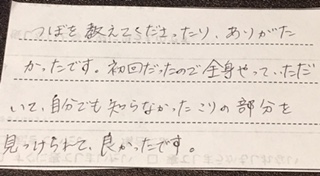 つぼを教えてくださったり、ありがた
かったです。初回だったので全身やっていただ
いて、自分でも知らなかったこりの部分を
見つけられて、良かったです。